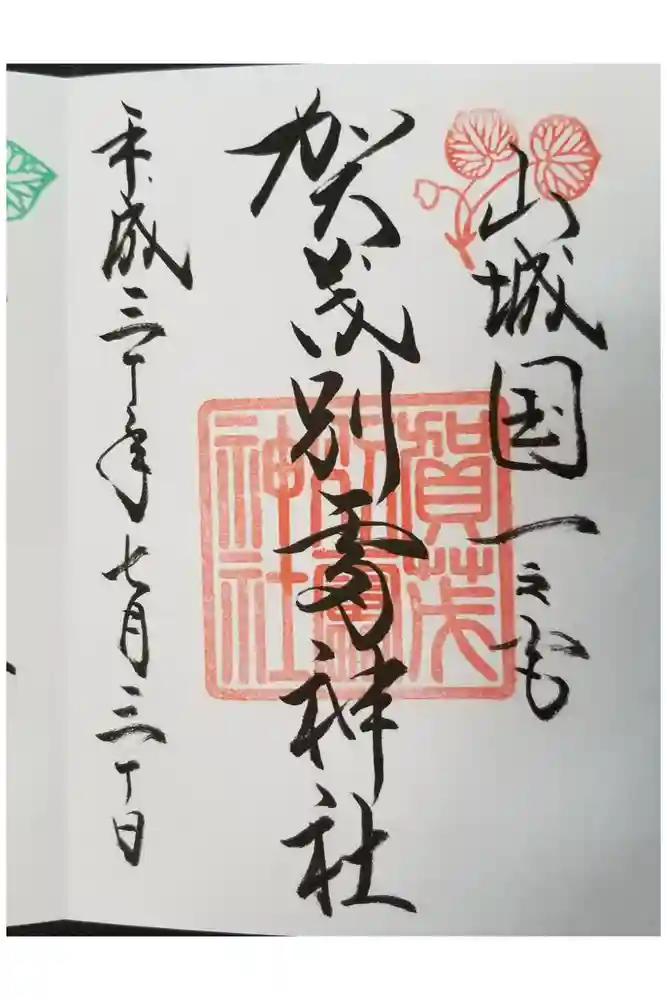 山城国一之宮
賀茂別雷神社
賀茂
別雷
神社
平成三十年七月三十日